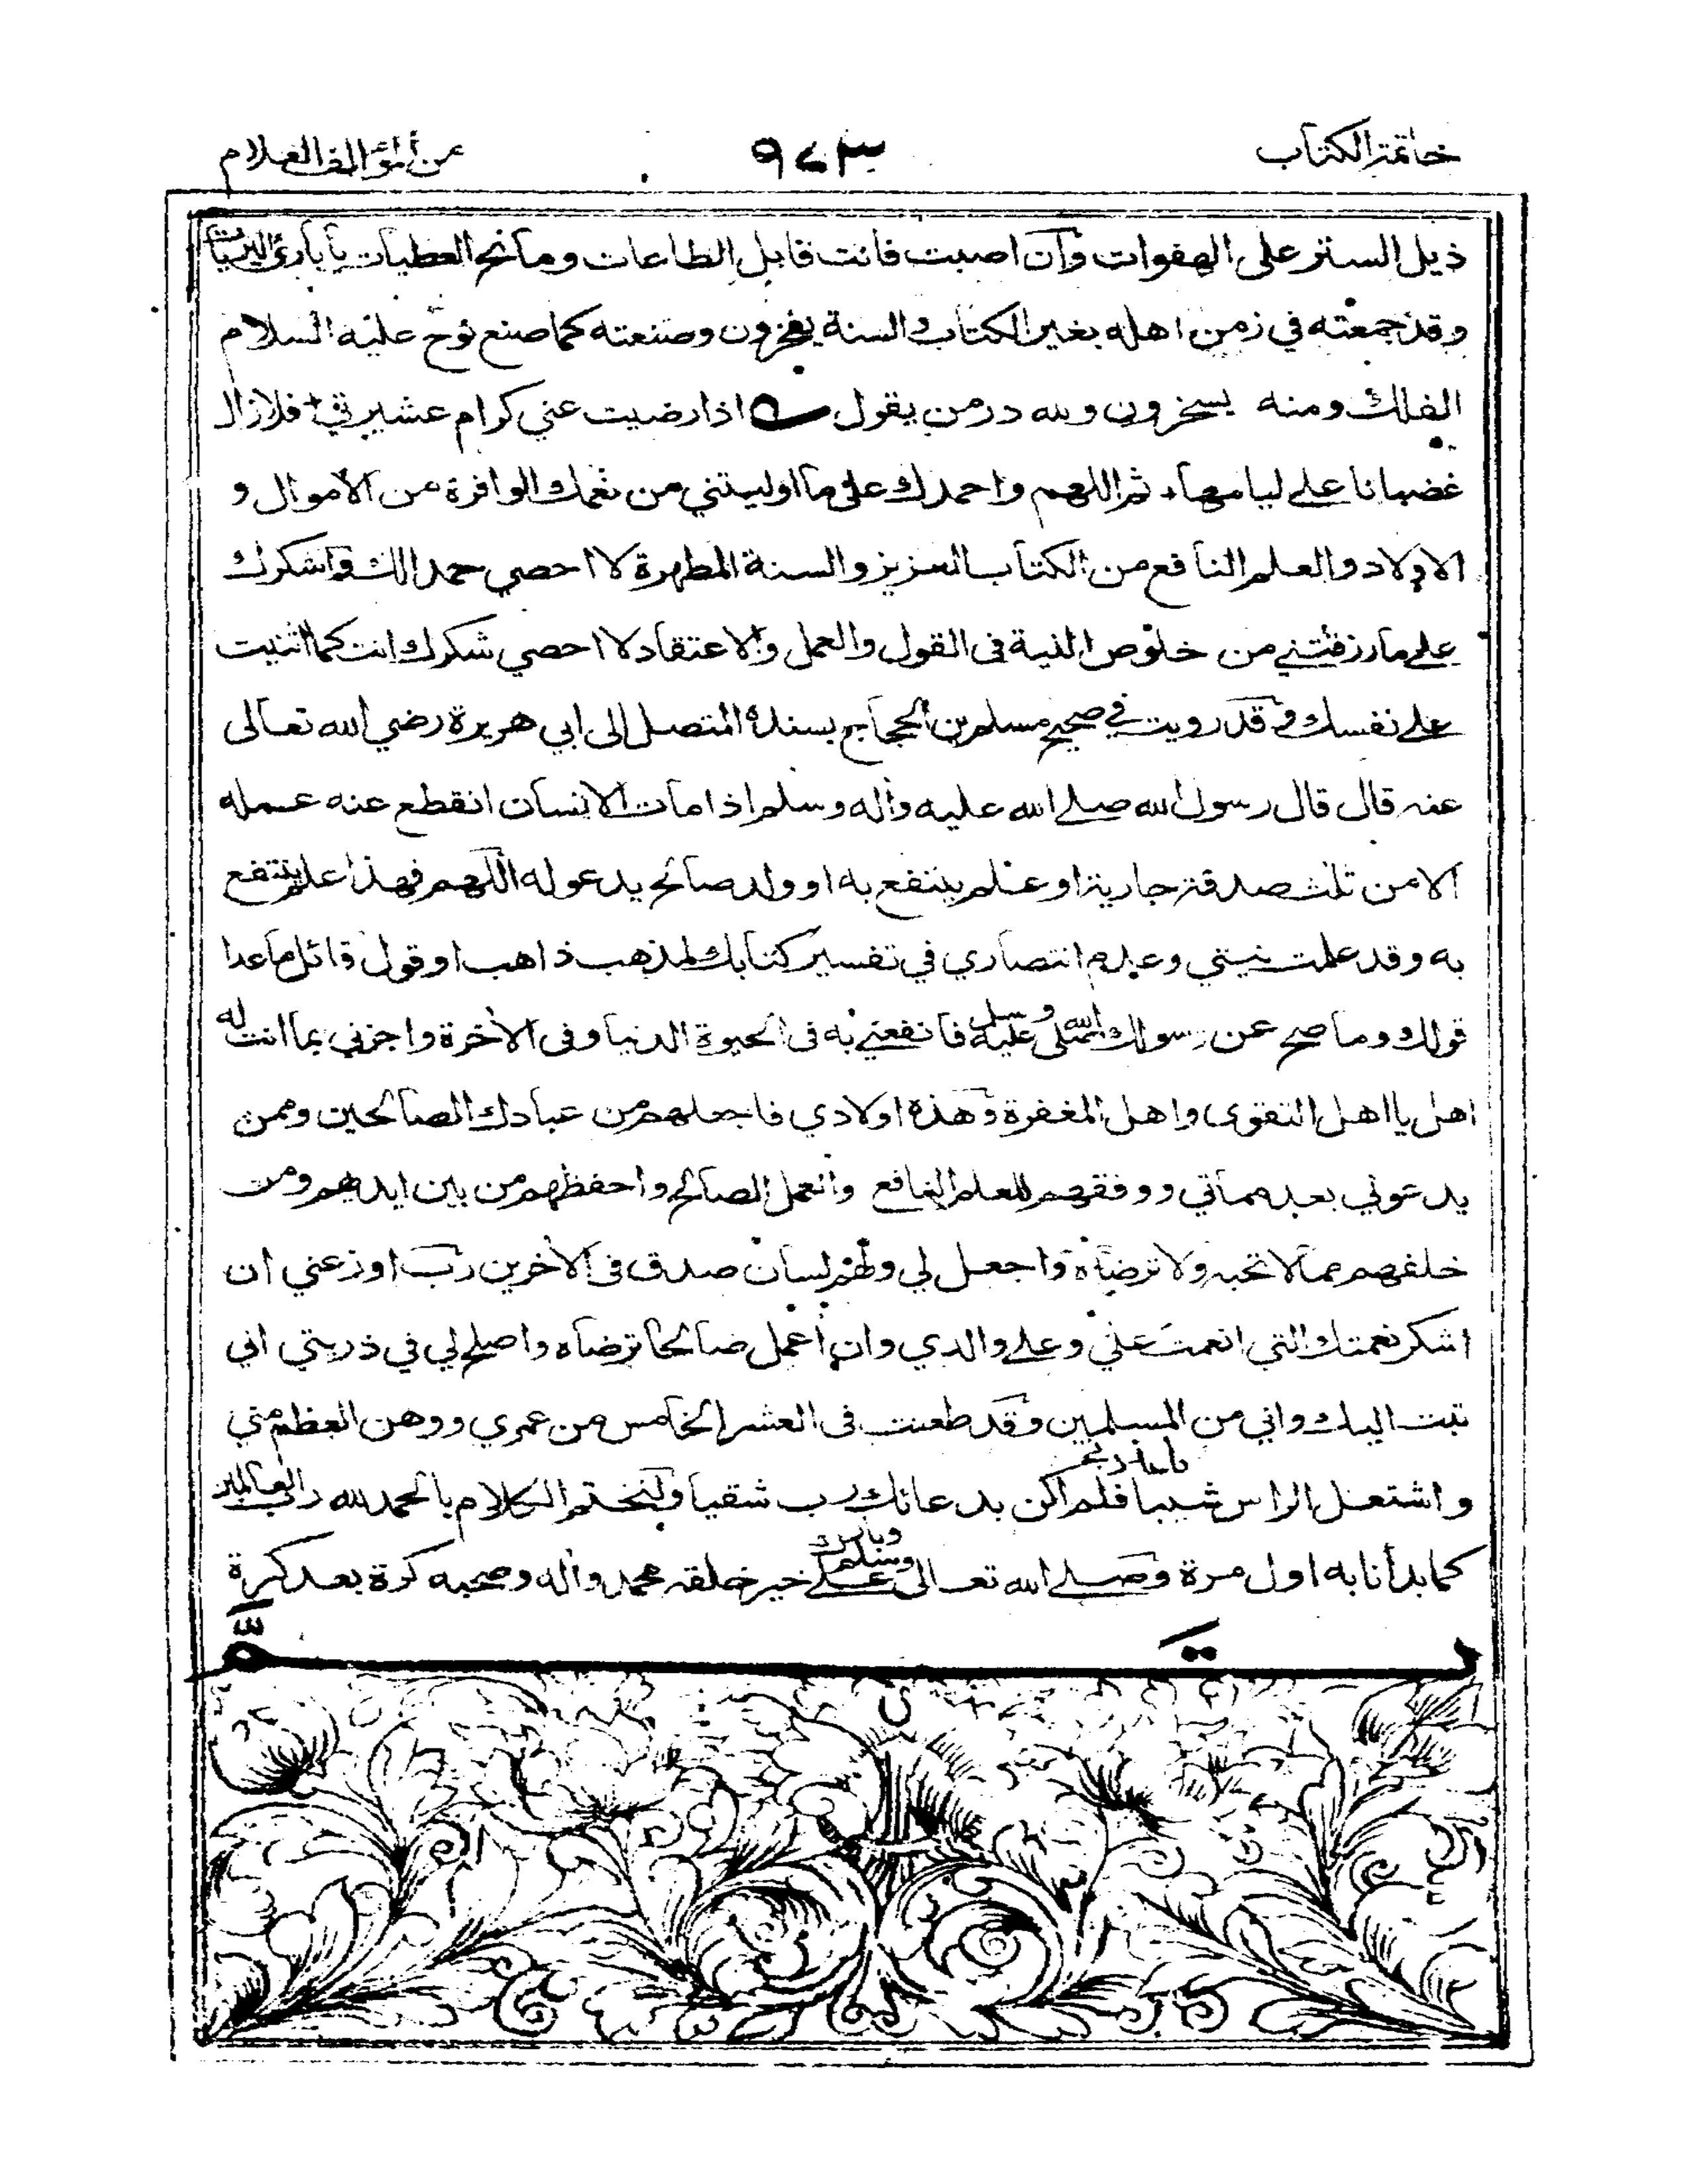 خاتمة الكتاب ٩٤٣ من المؤلف العلام
ذيل الستر على الهفوات وان اصبت فانت قابل الطاعات ومانح العطيات يا بارئ البريات
وقد جمعته في زمن اهله بغير الكتاب والسنة يفخرون وصنعته كما صنع نوح عليه السلام
الفلك ومنه يسخرون ولله در من يقول اذا رضيت عني كرام عشيرتي فلا زال
غضبانا علے ليامها ثم اللهم واحمدك على ما اوليتني من نعمك الوافرة من الأموال و
الاولاد والعلم النافع من الكتاب العزيز والسنة المطهرة لا احصي حمدا لك واشكرك
علے ما رزقتنے من خلوص النية فى القول والعمل والاعتقاد لا احصي شكرك انت كما اثنيت
علے نفسك وقد رويت في صحيح مسلم بن الحجاج بسنده المتصل الى ابي هريرة رضي الله تعالى
عنه قال قال رسول الله صلے الله عليه وأله وسلم اذا مات الانسان انقطع عنه عمله
الا من ثلث صدقة جارية او علم ينتفع به او ولد صالح يدعو له اللهم فهذا علم ينتفع
به وقد علمت نيتي وعدم انتصاري في تفسير كتابك لمذهب ذاهب او قول قائل ما عدا
قولك وما صح عن رسولك صلى الله عليه وسلم فانفعنے به فى الحيوة الدنيا وفى الأخرة واجزني بما انت له
اهل يا اهل التقوى واهل المغفرة وهذه اولادي فاجعلهم من عبادك الصالحين وممن
يدعو لي بعد مماتي ووفقهم للعلم النافع والعمل الصالح واحفظهم من بين ايديهم ومن
خلفهم مما لا تحبه ولا ترضاه واجعل لي ولهم لسان صدق فى الأخرين رب اوزعني ان
اشكر نعمتك التي انعمت علي وعلے والدي وان اعمل صالحا ترضاه واصلح لي في ذريتي اني
تبت اليك واني من المسلمين وقد طعنت فى العشر الخامس من عمري ووهن العظم مني
واشتعل الراس شيبا فلم اكن بدعائك رب شقيا ولنختم الكلام بالحمد لله رب العالمين
كما بدأنا به اول مرة وصلے الله تعالى وسلم وبارك علے خير خلقه محمد وأله وصحبه كرة بعد كرة
تم